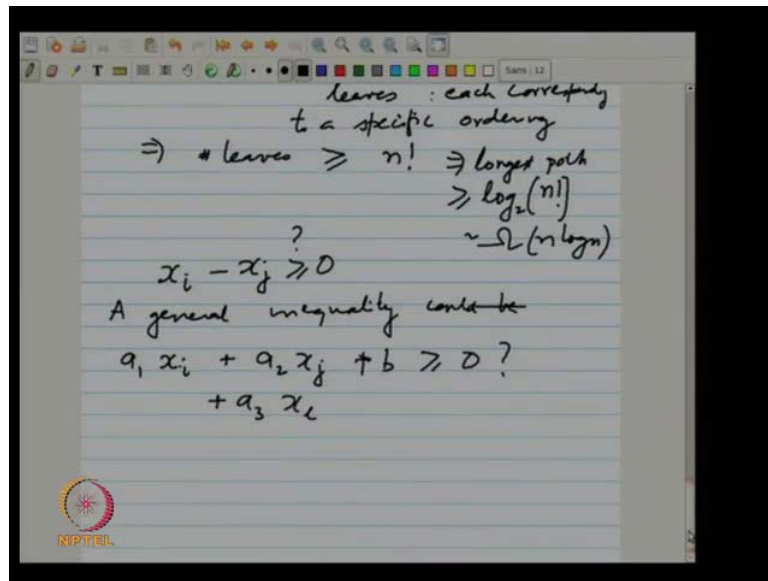 Sans 12
leaves : each correspondg
to a specific ordering
⇒ # leaves ≥ n! ⇒ longest path
≥ log₂(n!)
~ Ω(n log n)
?
xᵢ − xⱼ ≥ 0
A general inequality could be
a₁ xᵢ + a₂ xⱼ + b ≥ 0 ?
+ a₃ xₗ
NPTEL